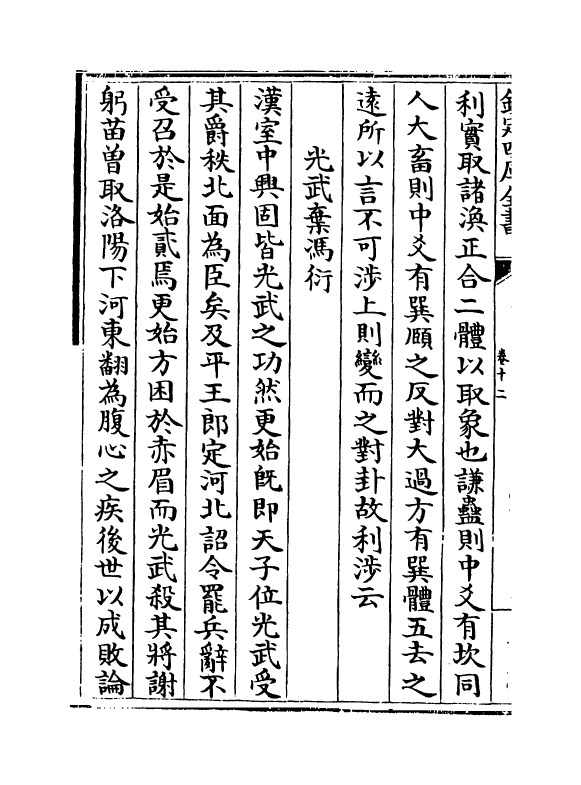 欽定四庫全書
卷十二
利實取諸渙正合二體以取象也謙蠱則中爻有坎同
人大畜則中爻有巽頤之反對大過方有巽體五去之
遠所以言不可涉上則變而之對卦故利涉云
光武棄馮衍
漢室中興固皆光武之功然更始既即天子位光武受
其爵秩北面為臣矣及平王郎定河北詔令罷兵辭不
受召於是始貳焉更始方困於赤眉而光武殺其將謝
躬苗曾取洛陽下河東翻為腹心之疾後世以成敗論